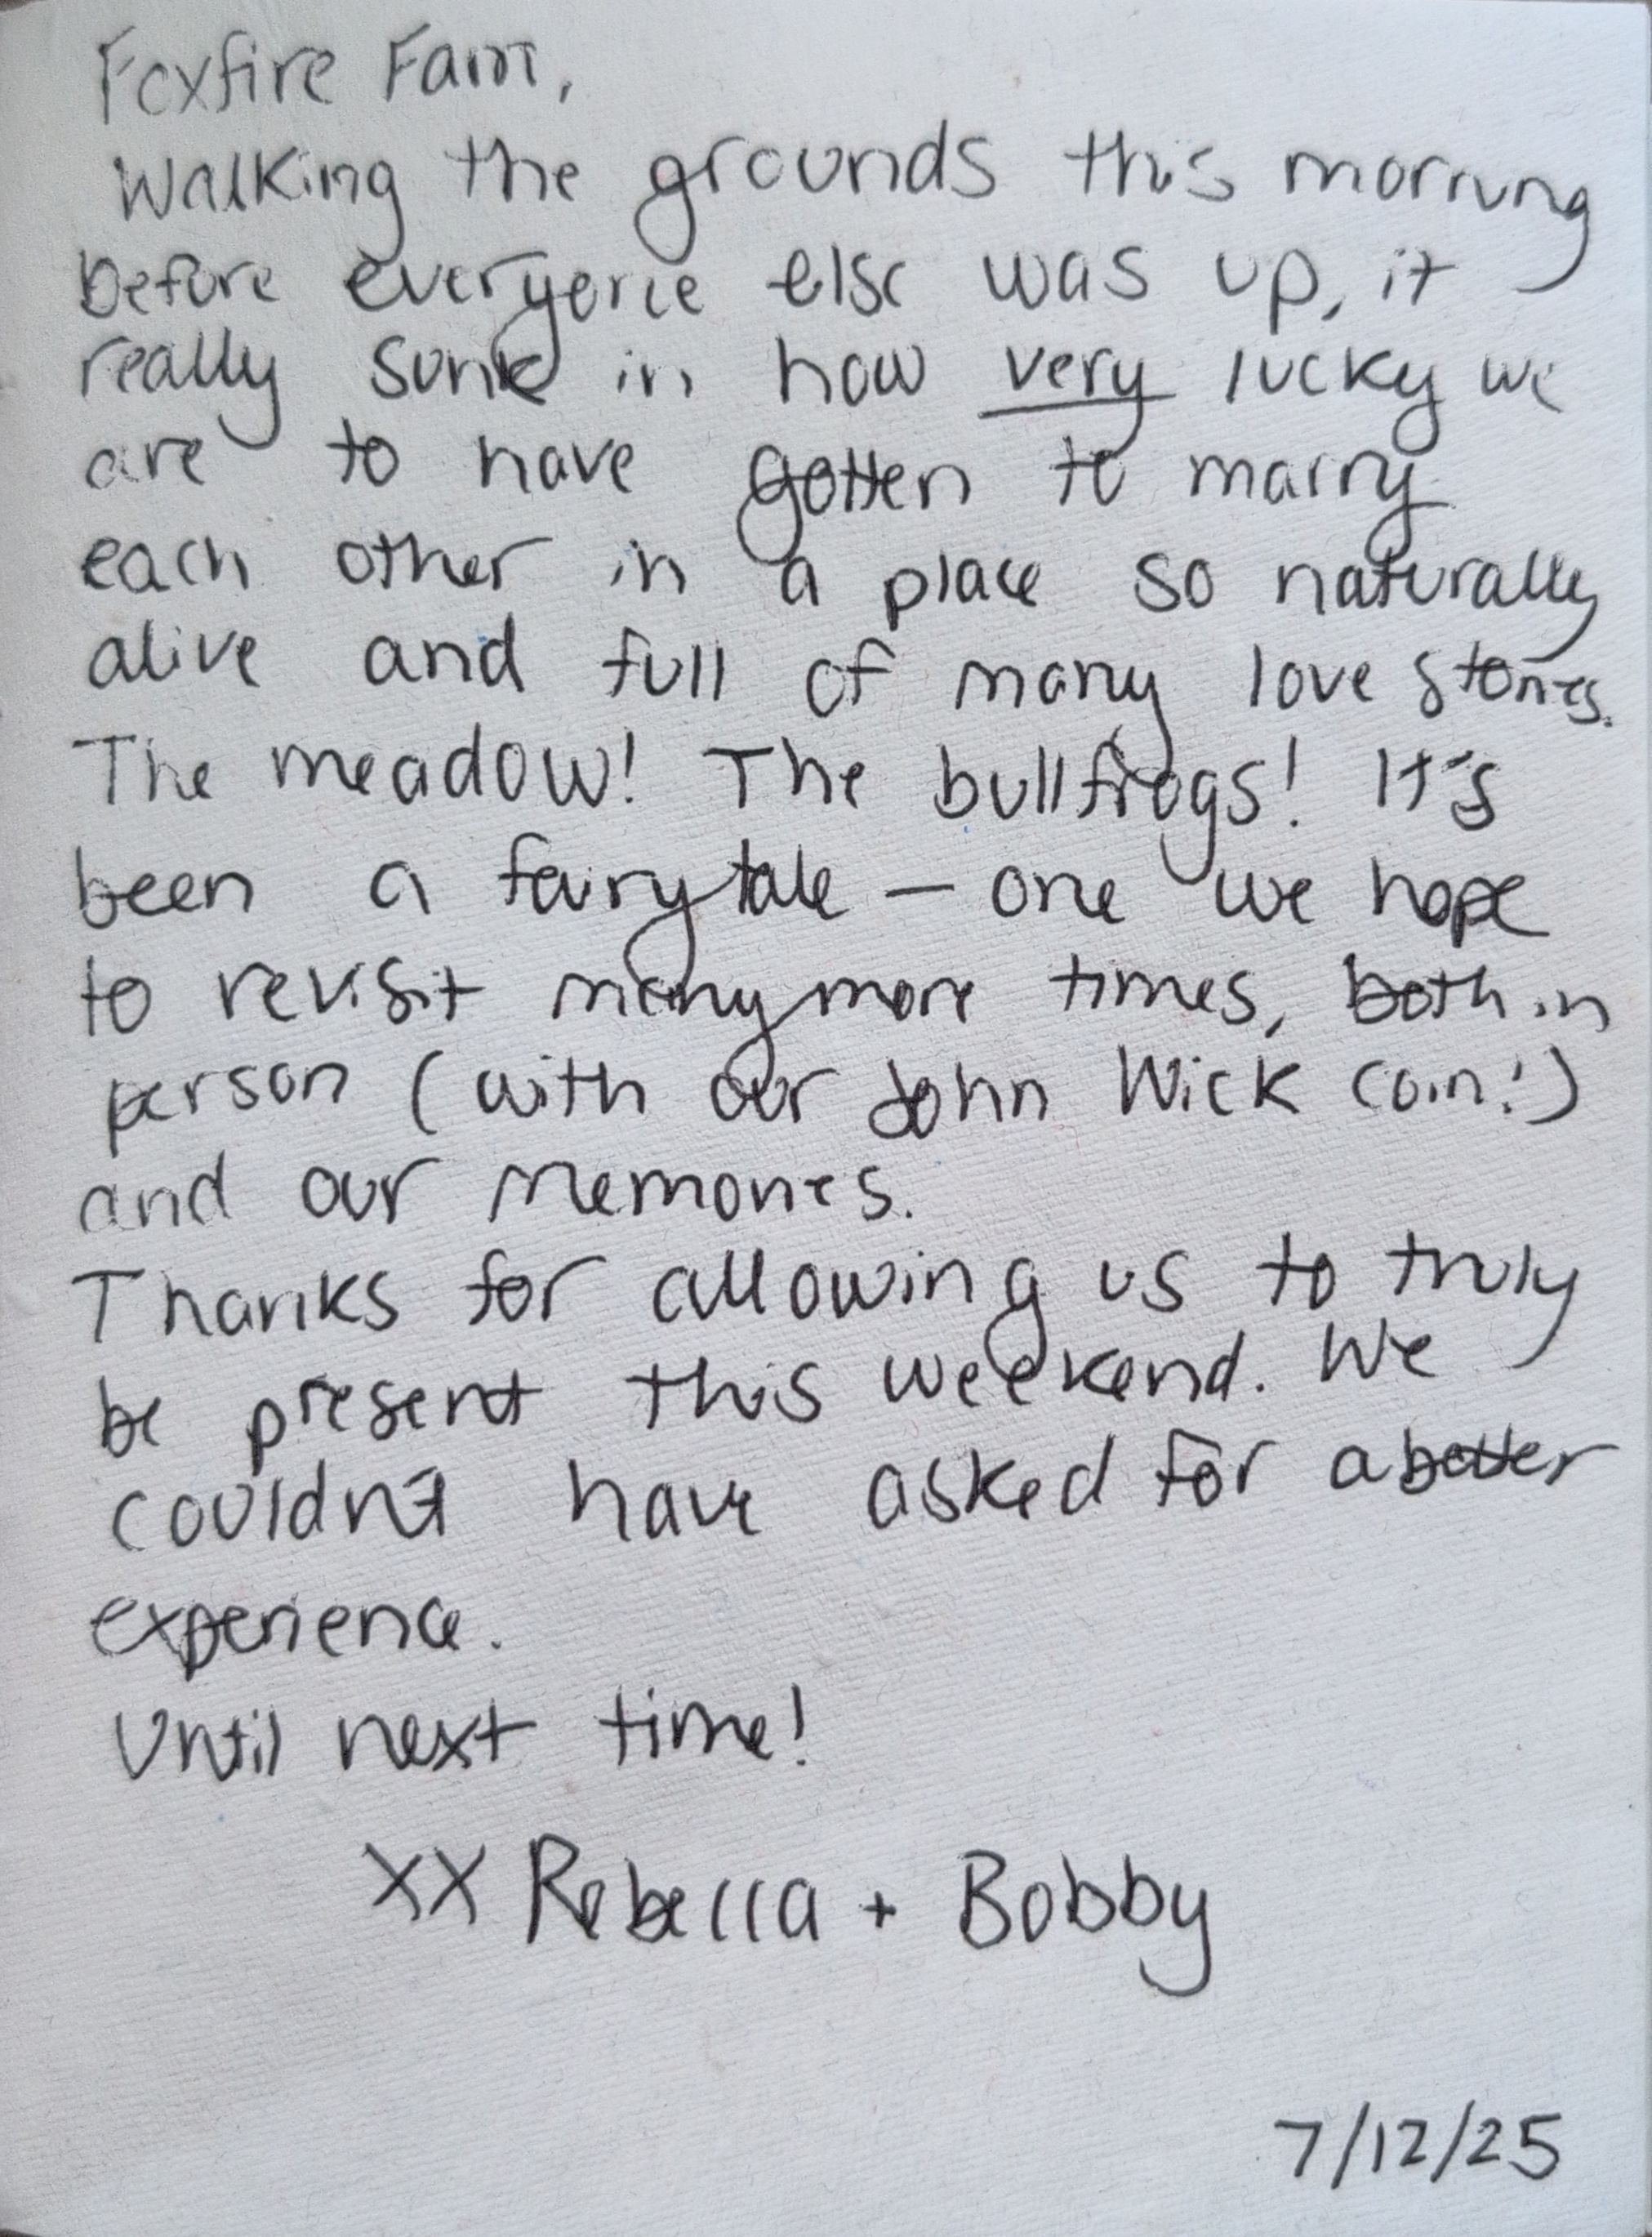 Foxfire Fam,
Walking the grounds this morning
before everyone else was up, it
really sunk in how very lucky we
are to have gotten to marry
each other in a place so naturally
alive and full of many love stories.
The meadow! The bullfrogs! It's
been a fairytale — one we hope
to revisit many more times, both in
person (with our John Wick coin!)
and our memories.
Thanks for allowing us to truly
be present this weekend. We
couldn't have asked for a better
experience.
Until next time!
XX Rebecca + Bobby
7/12/25